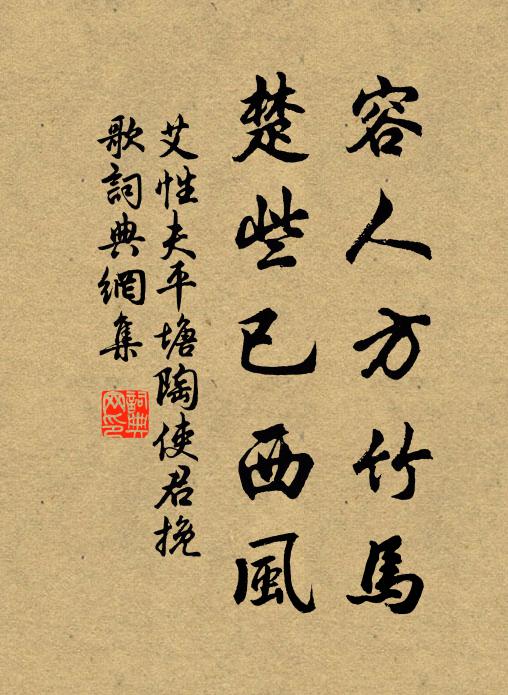 容人方竹馬
楚些已西風
艾性夫平塘陶使君挽
歌詞典網集
詞典
网印